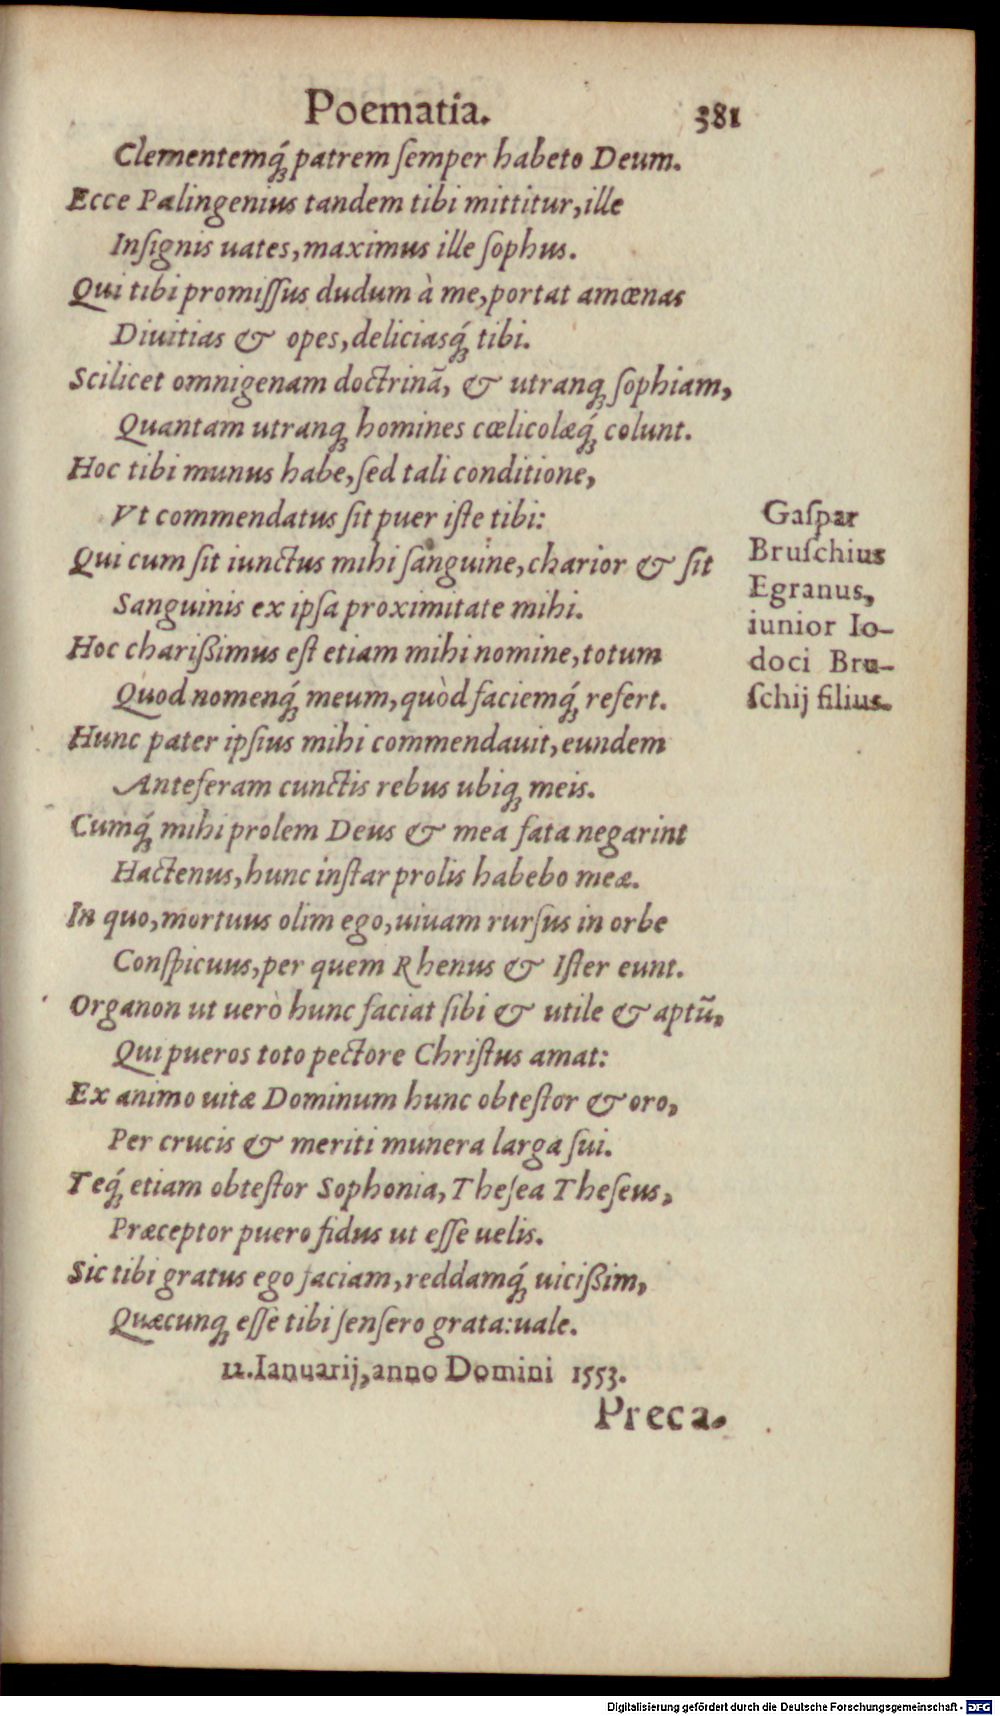 Poematia. 381
Clementemq́; patrem ſemper habeto Deum.
Ecce Palingenius tandem tibi mittitur, ille
Inſignis uates, maximus ille ſophus.
Qui tibi promiſſus dudum à me, portat amœnas
Diuitias & opes, deliciasq́; tibi.
Scilicet omnigenam doctrinā, & utranq; ſophiam,
Quantam utranq; homines cœlicolæq́; colunt.
Hoc tibi munus habe, ſed tali conditione,
Vt commendatus ſit puer iſte tibi:
Qui cum ſit iunctus mihi ſanguine, charior & ſit
Sanguinis ex ipſa proximitate mihi.
Hoc charißimus eſt etiam mihi nomine, totum
Quod nomenq́; meum, quòd faciemq́; refert.
Hunc pater ipſius mihi commendauit, eundem
Anteferam cunctis rebus ubiq; meis.
Cumq́; mihi prolem Deus & mea fata negarint
Hactenus, hunc inſtar prolis habebo meæ.
In quo, mortuus olim ego, uiuam rurſus in orbe
Conſpicuus, per quem Rhenus & Iſter eunt.
Organon ut uerò hunc faciat ſibi & utile & aptū,
Qui pueros toto pectore Chriſtus amat:
Ex animo uitæ Dominum hunc obteſtor & oro,
Per crucis & meriti munera larga ſui.
Teq́; etiam obteſtor Sophonia, Theſea Theſeus,
Præceptor puero fidus ut eſſe uelis.
Sic tibi gratus ego faciam, reddamq́; uicißim,
Quæcunq; eſſe tibi ſenſero grata: uale.
12. Ianuarij, anno Domini 1553.
Preca.
Gaſpar
Bruſchius
Egranus,
iunior Io-
doci Bru-
ſchij filius.
Digitalisierung gefördert durch die Deutsche Forschungsgemeinschaft - DFG